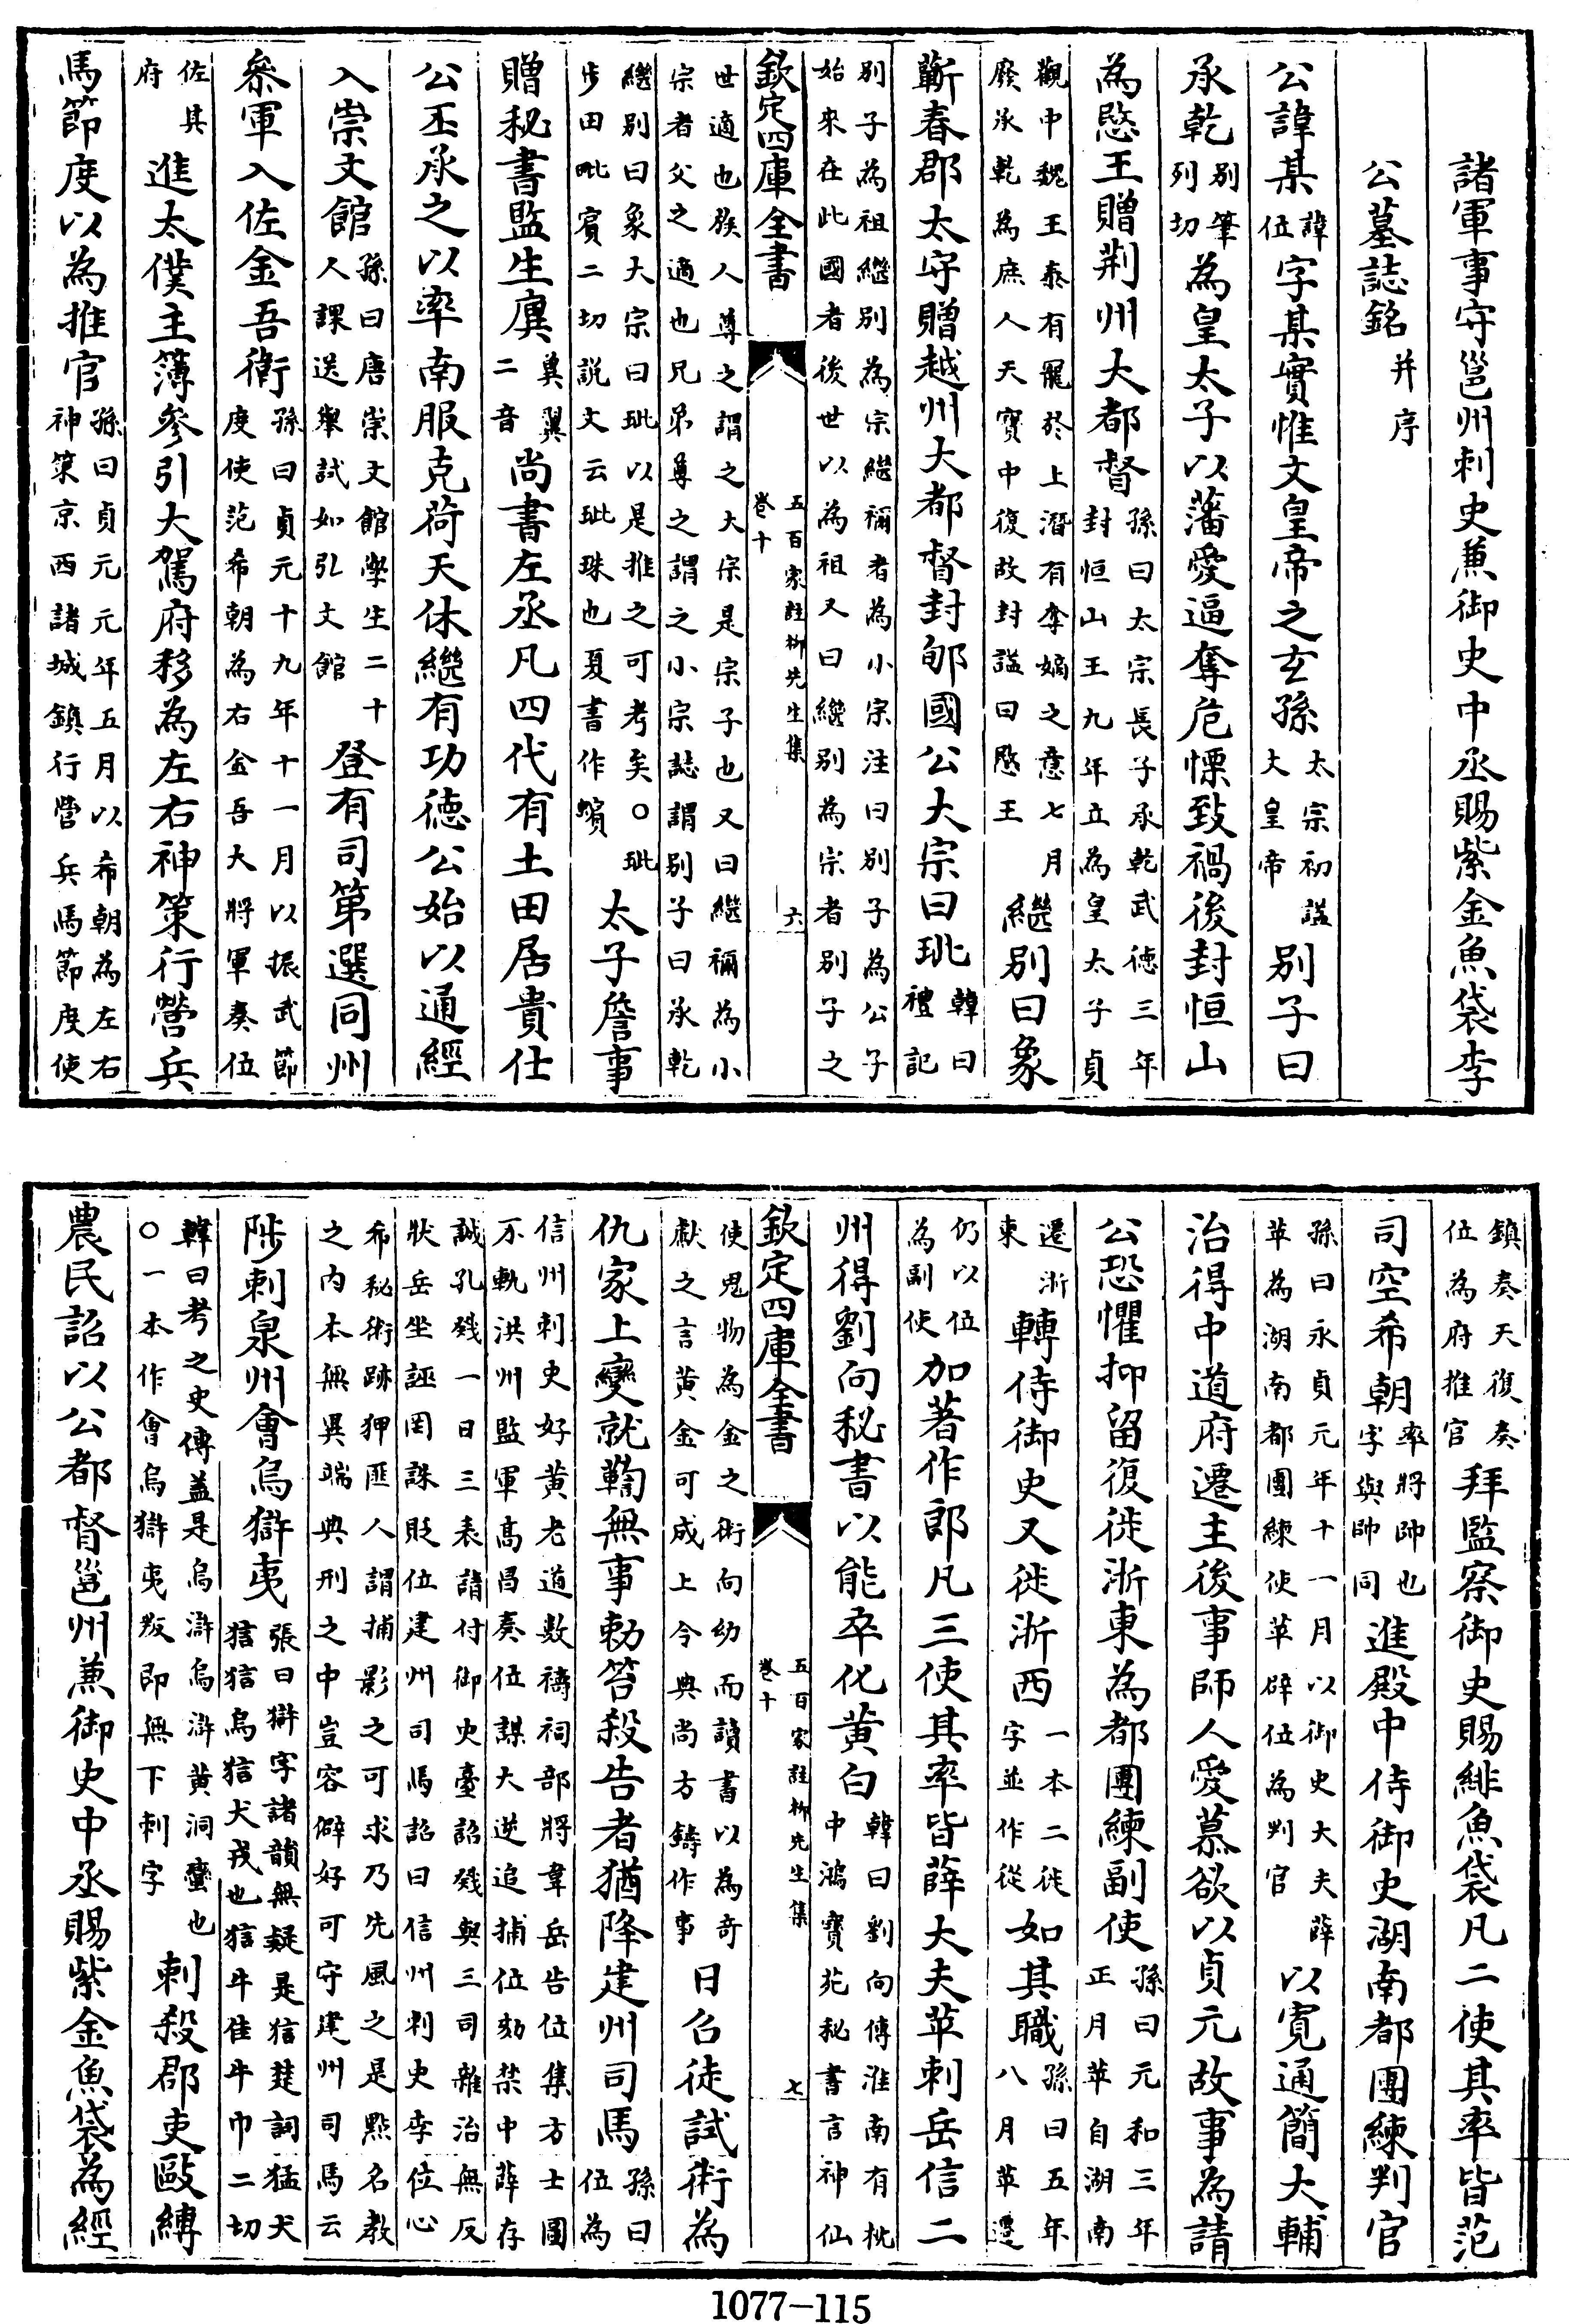 諸軍事守邕州刺史兼御史中丞賜紫金魚袋李
公墓誌銘并序
公諱某諱位字某實惟文皇帝之玄孫太宗初諡文皇帝別子曰
承乾別筆列切為皇太子以藩愛逼奪危慄致禍後封恒山
為愍王贈荆州大都督孫曰太宗長子承乾武徳三年封恒山王九年立為皇太子貞
觀中魏王泰有寵於上潛有奪嫡之意七月廢承乾為庶人天寳中復故封諡曰愍王繼別曰象
蘄春郡太守贈越州大都督封郇國公大宗曰玭韓曰禮記
別子為祖繼別為宗繼禰者為小宗注曰別子為公子始來在此國者後世以為祖又曰繼別為宗者別子之
欽定四庫全書 五百家註柳先生集 卷十 六
世適也族人尊之謂之大宗是宗子也又曰繼禰為小宗者父之適也兄弟尊之謂之小宗誌謂別子曰承乾
繼別曰象大宗曰玭以是推之可考矣○玭步田毗賓二切說文云玭珠也夏書作蠙太子詹事
贈秘書監生廙冀翼二音尚書左丞凡四代有土田居貴仕
公丕承之以率南服克荷天休繼有功德公始以通經
入崇文館孫曰唐崇文館學生二十人課送舉試如弘文館登有司第選同州
叅軍入佐金吾衛孫曰貞元十九年十一月以振武節度使范希朝為右金吾大將軍奏位
佐其府進太僕主簿參引大駕府移為左右神策行營兵
馬節度以為推官孫曰貞元元年五月以希朝為左右神策京西諸城鎮行營兵馬節度使
鎮奏天復奏位為府推官拜監察御史賜緋魚袋凡二使其率皆范
司空希朝率將帥也字與帥同進殿中侍御史湖南都團練判官
孫曰永貞元年十一月以御史大夫薛苹為湖南都團練使苹辟位為判官以寛通簡大輔
治得中道府遷主後事師人愛慕欲以貞元故事為請
公恐懼抑留復徙浙東為都團練副使孫曰元和三年正月苹自湖南
遷浙東轉侍御史又徙浙西一本二徙字並作從如其職孫曰五年八月苹遷
仍以位為副使加著作郎凡三使其率皆薛大夫苹刺岳信二
州得劉向秘書以能卒化黄白韓曰劉向傳淮南有枕中鴻寳苑秘書言神仙
欽定四庫全書 五百家註柳先生集 卷十 七
使鬼物為金之術向幼而讀書以為奇獻之言黄金可成上令典尚方鑄作事日召徒試術為
仇家上變就鞫無事勅笞殺告者猶降建州司馬孫曰位為
信州刺史好黄老道數禱祠部將韋岳告位集方士圖不軌洪州監軍高昌奏位謀大逆追捕位劾禁中薛存
誠孔戣一日三表請付御史臺詔戣與三司雜治無反狀岳坐誣罔誅貶位建州司馬詔曰信州刺史李位心
希秘術跡狎匪人謂捕影之可求乃先風之是㸃名教之内本無異端典刑之中豈容僻好可守建州司馬云
陟刺泉州會烏獄夷張曰獄字諸韻無疑是㹤楚詞猛犬㹤㹤烏㹤犬戎也㹤牛佳牛巾二切
韓曰考之史傳盖是烏滸烏滸黄洞蠻也○一本作會烏獄夷叛即無下刺字刺殺郡吏毆縛
農民詔以公都督邕州兼御史中丞賜紫金魚袋為經
1077-115